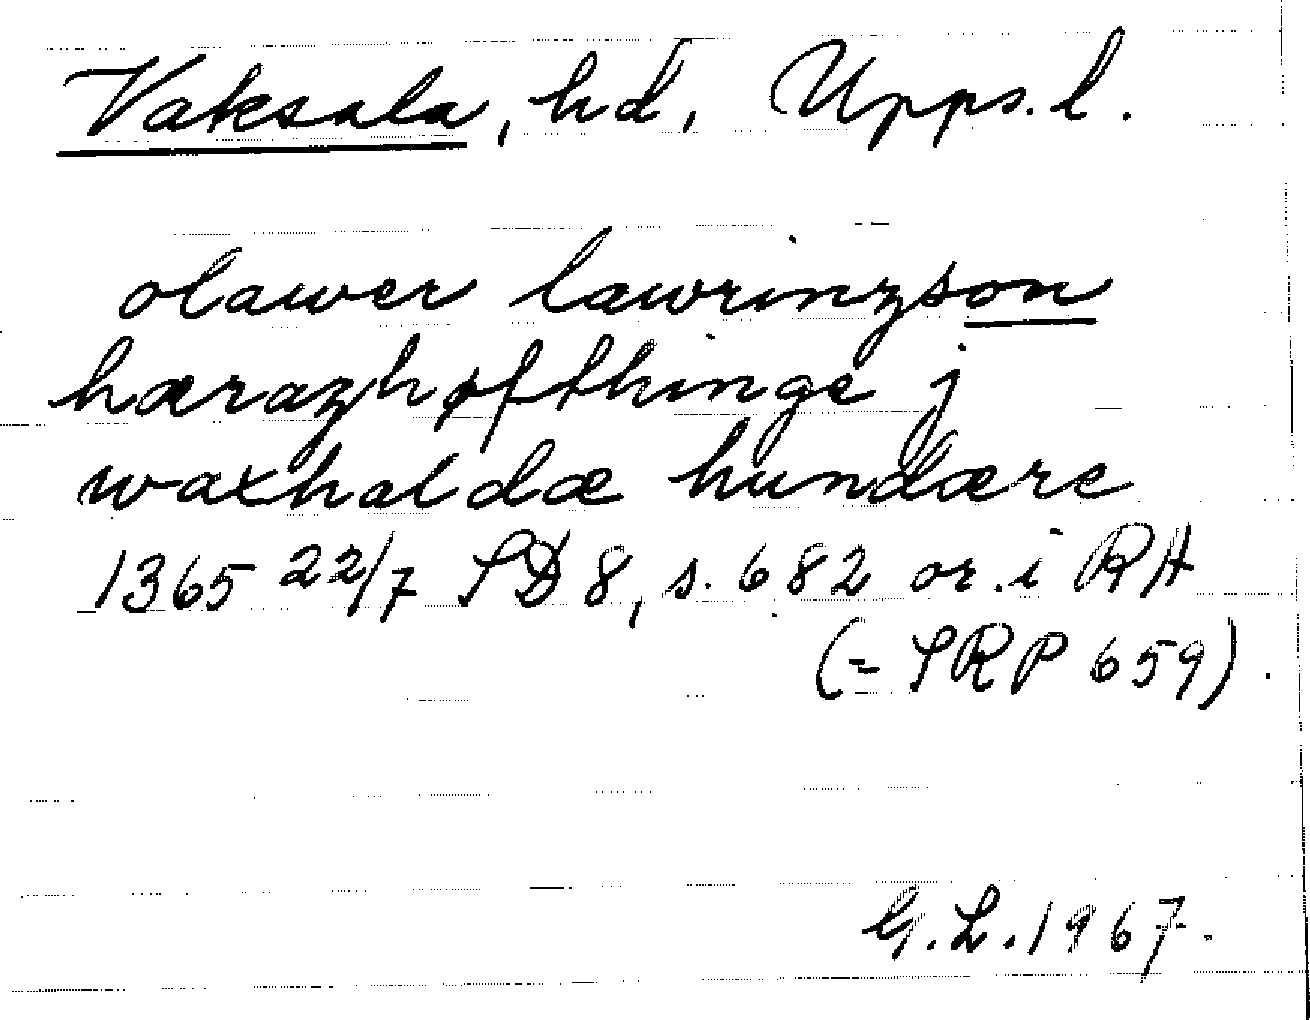 Vaksala, hd, Upps. l.
olawer lawrinzson
hærazhøfthinge j
waxhaldæ hundære
1365 22/7 SD 8, s. 682 or. i RA
(= SRP 659).
G. L. 1967.